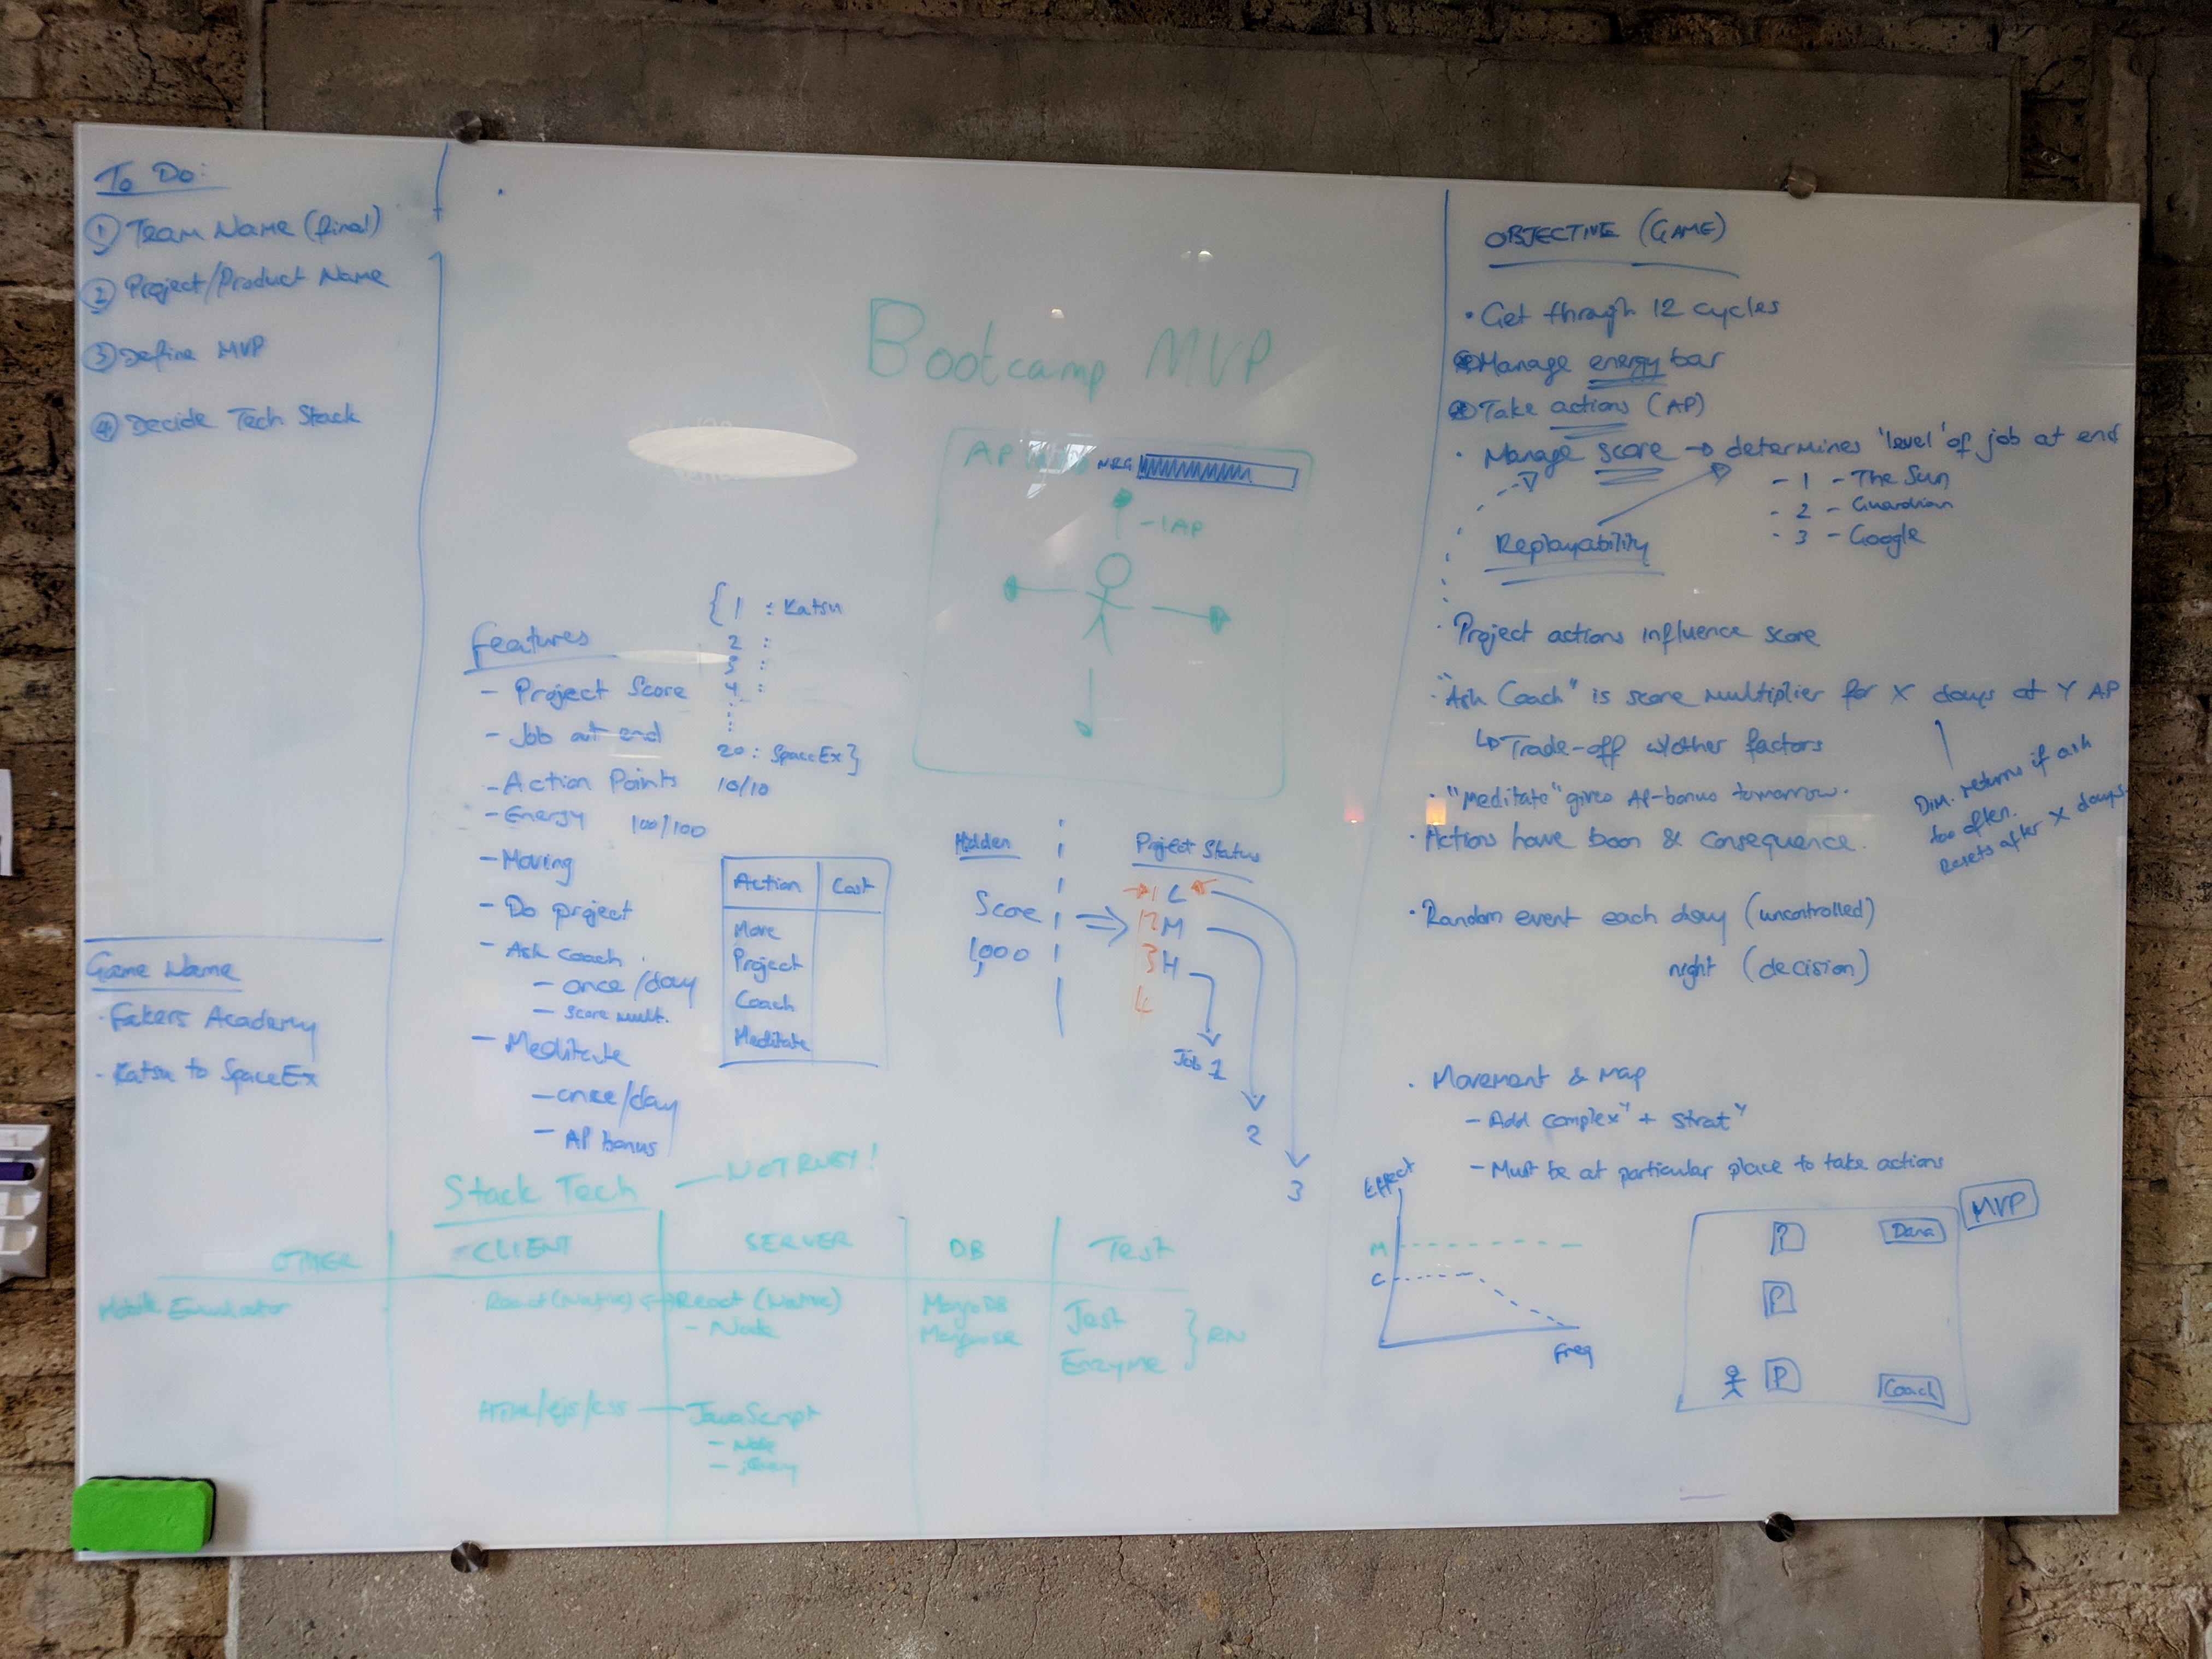 To Do:
① Team Name (final)
② Project/Product Name
③ Define MVP
④ Decide Tech Stack
Game Name
· Fakers Academy
· Katsu to SpaceEx
Bootcamp MVP
AP
NRG
-1AP
Features
- Project Score
- Job at end
- Action Points 10/10
- Energy 100/100
- Moving
- Do project
- Ask coach
- once/day
- score mult.
- Meditate
- once/day
- AP bonus
{1 : Katsu
2 :
3 :
4 :
20 : SpaceEx}
Action Cost
Move
Project
Coach
Meditate
Hidden
Score
1,000
Project Status
1 L
2 M
3 H
4
Job 1
2
3
Stack Tech — NOT RUBY!
OTHER CLIENT SERVER DB Test
Mobile Emulator React (Native) React (Native) MongoDB Jest
- Node Mongoose Enzyme } RN
HTML/ejs/css — JavaScript
- Node
- jQuery
OBJECTIVE (GAME)
· Get through 12 cycles
Manage energy bar
Take actions (AP)
· Manage score → determines 'level' of job at end
- 1 - The Sun
- 2 - Guardian
- 3 - Google
Replayability
· Project actions influence score
· "Ask Coach" is score multiplier for X days at Y AP
↳ Trade-off w/other factors
Dim. returns if ask
too often.
Resets after X days.
· "Meditate" gives AP-bonus tomorrow.
· Actions have boon & consequence.
· Random event each day (uncontrolled)
night (decision)
· Movement & map
- Add complexʸ + stratʸ
- Must be at particular place to take actions
Effect
M
C
Freq
MVP
P
Dana
P
P
Coach